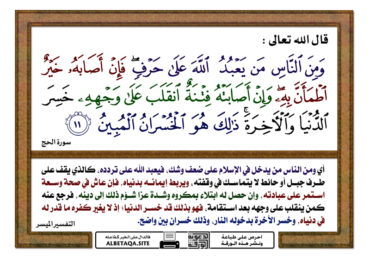 قال الله تعالى :
وَمِنَ النَّاسِ مَن يَعْبُدُ اللَّهَ عَلَىٰ حَرْفٍ ۖ فَإِنْ أَصَابَهُ خَيْرٌ
اطْمَأَنَّ بِهِ ۖ وَإِنْ أَصَابَتْهُ فِتْنَةٌ انقَلَبَ عَلَىٰ وَجْهِهِ خَسِرَ
الدُّنْيَا وَالْآخِرَةَ ۚ ذَٰلِكَ هُوَ الْخُسْرَانُ الْمُبِينُ ١١
سورة الحج
أي ومن الناس من يدخل في الإسلام على ضعف وشك، فيعبد الله على تردده، كالذي يقف على
طرف جبل أو حائط لا يتماسك في وقفته، ويربط إيمانه بدنياه، فإن عاش في صحة وسعة
استمر على عبادته، وإن حصل له ابتلاء بمكروه وشدة عزا شؤم ذلك إلى دينه، فرجع عنه
كمن ينقلب على وجهه بعد استقامة، فهو بذلك قد خسر الدنيا؛ إذ لا يغير كفره ما قدر له
في دنياه، وخسر الآخرة بدخوله النار، وذلك خسران بين واضح.
التفسير الميسر
احرص على طباعة
ونشر هذه الورقة
قال ﷺ الدال على الخير كفاعله
ALBETAQA.SITE